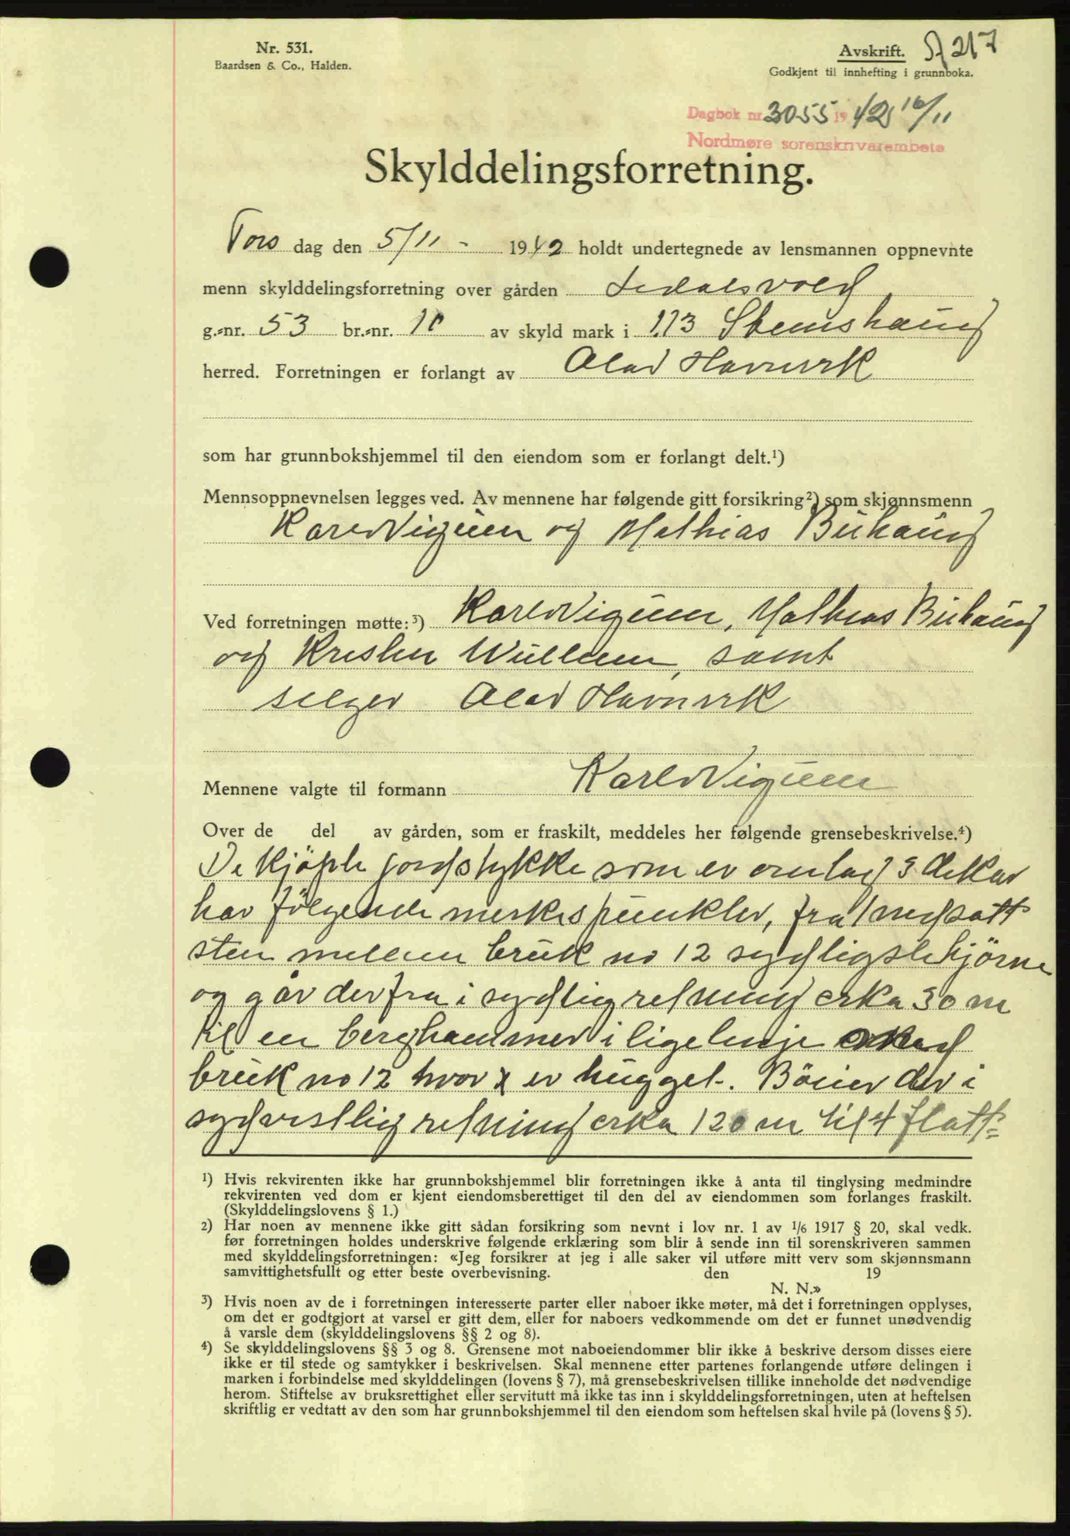 Nr. 531.
Baardsen & Co., Halden.
Avskrift. 217
Godkjent til innhefting i grunnboka.
Dagbok nr. 3055 1942 16/11
Nordmøre sorenskrivarembete
Skylddelingsforretning.
Tors dag den 5/11 - 1942 holdt undertegnede av lensmannen oppnevnte
menn skylddelingsforretning over gården
g.-nr. 53 br.-nr. 10 av skyld mark i 1.13 Stemshaug
herred. Forretningen er forlangt av Olav Havnvik
som har grunnbokshjemmel til den eiendom som er forlangt delt.¹)
Mennsoppnevnelsen legges ved. Av mennene har følgende gitt forsikring²) som skjønnsmenn
Karl Viguen og Mathias Buhaug
Ved forretningen møtte:³) Karl Viguen, Mathias Buhaug
og Krister Wullum, samt
selger Olav Havnvik
Mennene valgte til formann Karl Viguen
Over de del av gården, som er fraskilt, meddeles her følgende grensebeskrivelse.⁴)
De kjøpte jordstykke som er omlag 3 dekar
har følgende merkespunkter, fra 1 nedsatt
sten mellem bruk no 12 sydligste hjørne
og går derfra i sydlig retning cirka 30 m
til en berghammer i ligelinje med
bruk no 12 hvor x er hugget. Bøier der i
sydvestlig retning cirka 120 m til 4 flatt=
¹) Hvis rekvirenten ikke har grunnbokshjemmel blir forretningen ikke å anta til tinglysing medmindre
rekvirenten ved dom er kjent eiendomsberettiget til den del av eiendommen som forlanges fraskilt.
(Skylddelingslovens § 1.)
²) Har noen av mennene ikke gitt sådan forsikring som nevnt i lov nr. 1 av 1/6 1917 § 20, skal vedk.
før forretningen holdes underskrive følgende erklæring som blir å sende inn til sorenskriveren sammen
med skylddelingsforretningen: «Jeg forsikrer at jeg i alle saker vil utføre mitt verv som skjønnsmann
samvittighetsfullt og etter beste overbevisning. den 19
N. N.»
³) Hvis noen av de i forretningen interesserte parter eller naboer ikke møter, må det i forretningen opplyses,
om det er godtgjort at varsel er gitt dem, eller for naboers vedkommende om det er funnet unødvendig
å varsle dem (skylddelingslovens §§ 2 og 8).
⁴) Se skylddelingslovens §§ 3 og 8. Grensene mot naboeiendommer blir ikke å beskrive dersom disses eiere
ikke er til stede og samtykker i beskrivelsen. Skal mennene etter partenes forlangende utføre delingen i
marken i forbindelse med skylddelingen (lovens § 7), må grensebeskrivelsen tillike inneholde det nødvendige
herom. Stiftelse av bruksrettighet eller servitutt må ikke tas inn i skylddelingsforretningen, uten at heftelsen
skriftlig er vedtatt av den som har grunnbokshjemmel til den eiendom som heftelsen skal hvile på (lovens § 5).